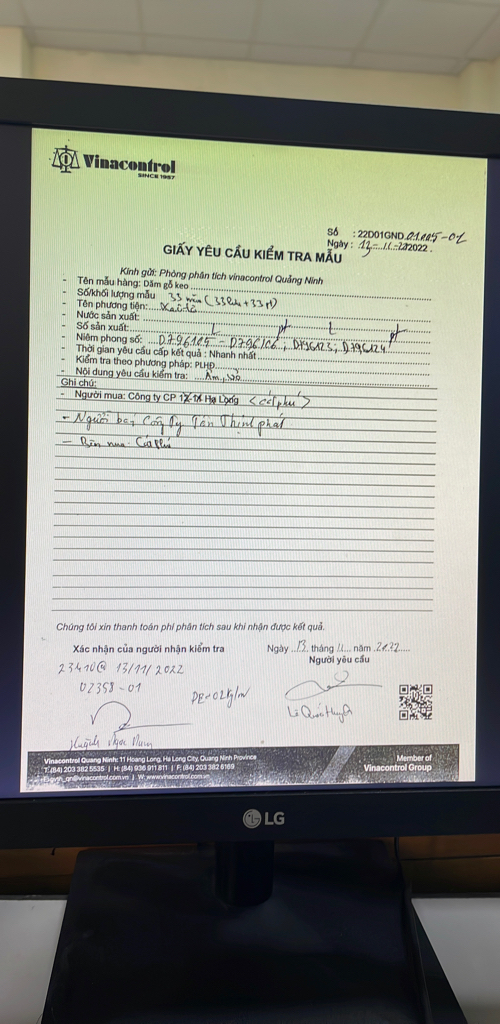 Vinacontrol
SINCE 1957
Số : 22D01GND.01.105-01
Ngày: 13-11-2022.
GIẤY YÊU CẦU KIỂM TRA MẪU
Kính gửi: Phòng phân tích vinacontrol Quảng Ninh
- Tên mẫu hàng: Dăm gỗ keo
- Số/khối lượng mẫu 33
- Tên phương tiện:
- Nước sản xuất:
- Số sản xuất:
- Niêm phong số:
- Thời gian yêu cầu cấp kết quả : Nhanh nhất
- Kiểm tra theo phương pháp: PLHĐ
- Nội dung yêu cầu kiểm tra: Ẩm, vỏ
Ghi chú:
- Người mua: Công ty CP Hạ Long
- Người bán Công Ty Tân Thịnh phát
- Bên mua: Cái
Chúng tôi xin thanh toán phí phân tích sau khi nhận được kết quả.
Xác nhận của người nhận kiểm tra
Ngày 13 tháng 11 năm 2022
Người yêu cầu
23h10@ 13/11/2022
02358-01
Lê Quốc Huynh
Huỳnh Ngọc
Vinacontrol Quang Ninh: 11 Hoang Long, Ha Long City, Quang Ninh Province
T:(84) 203 382 5535 | H: (84) 936 911 811 | F:(84) 203 382 6169
| W:www.vinacontrol.com.vn
Member of
Vinacontrol Group
LG